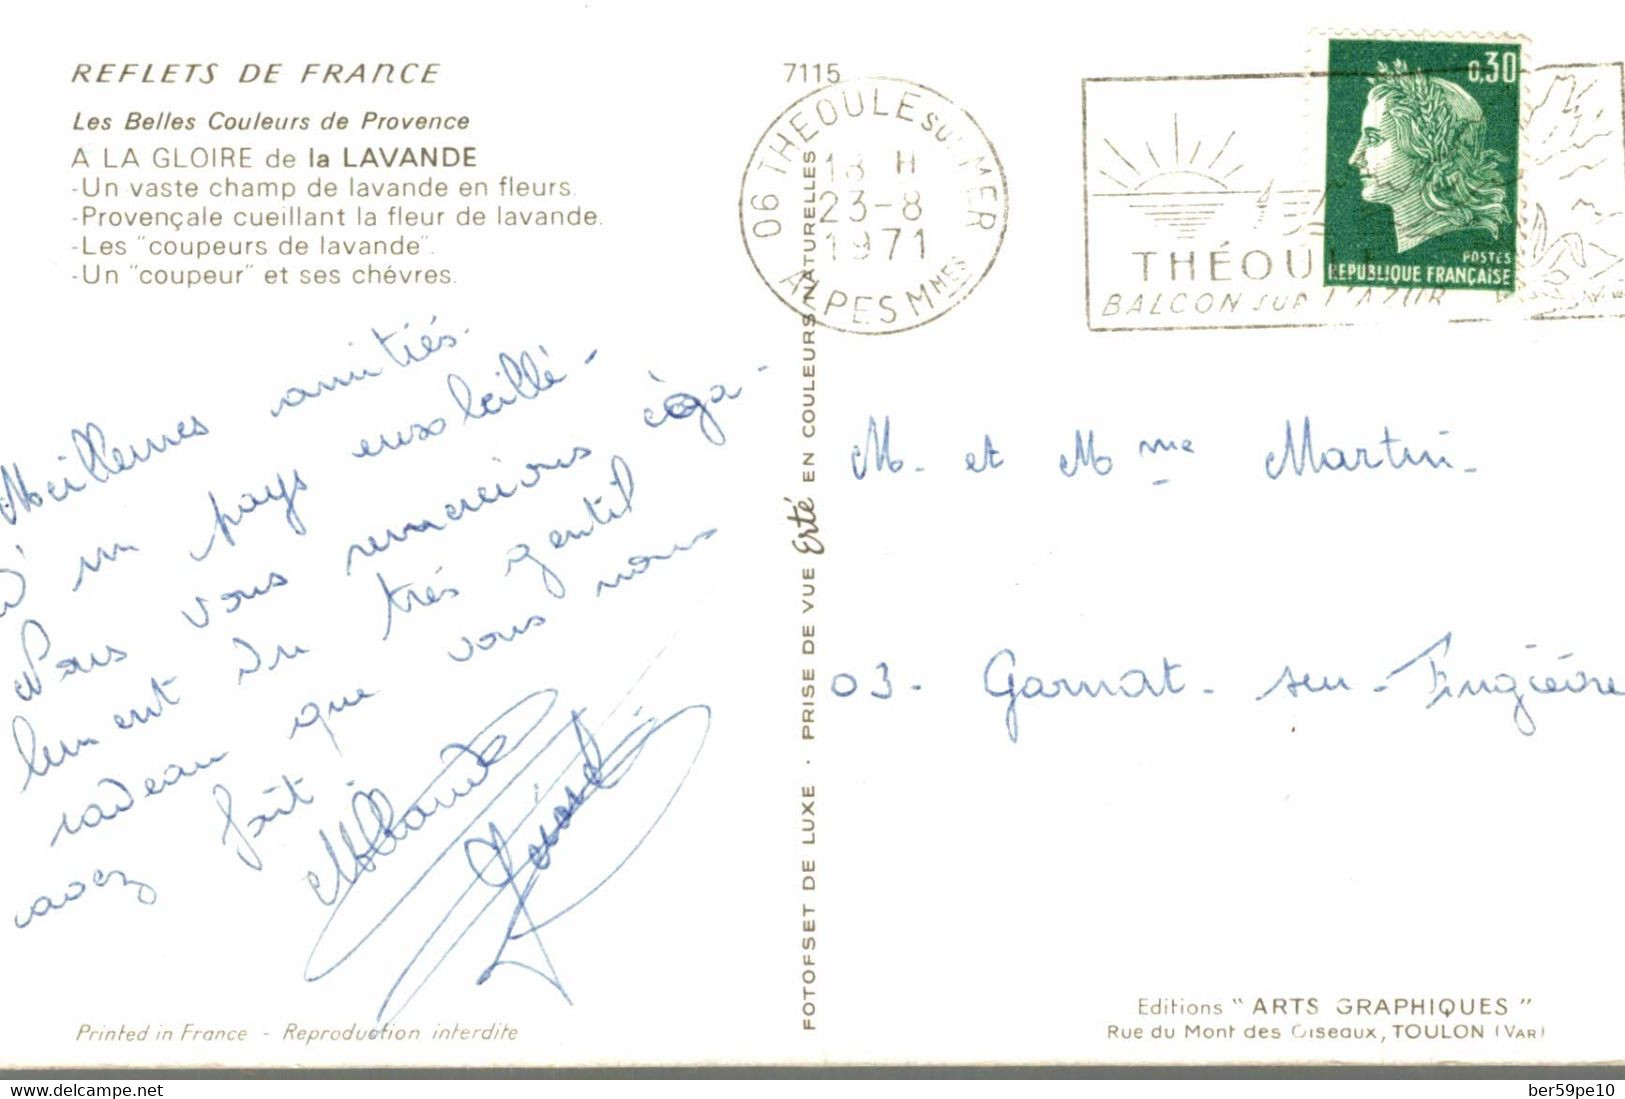 REFLETS DE FRANCE
Les Belles Couleurs de Provence
A LA GLOIRE de la LAVANDE
-Un vaste champ de lavande en fleurs.
-Provençale cueillant la fleur de lavande.
-Les "coupeurs de lavande".
-Un "coupeur" et ses chévres.
Meilleures amitiés.
D'un pays ensoleillé -
Nous vous remercions éga-
lement du trés gentil
cadeau que vous nous
avez fait.
Printed in France - Reproduction interdite
7115
06 THEOULE SUR MER
18 H
23-8
1971
ALPES MMES
FOTOFSET DE LUXE . PRISE DE VUE Erté EN COULEURS NATURELLES
0,30
POSTES
REPUBLIQUE FRANÇAISE
THÉOULE
BALCON SUR L'AZUR
M. et Mme Martin.
03. Garnat - sur - Engièvre
Editions "ARTS GRAPHIQUES"
Rue du Mont des Oiseaux, TOULON (VAR)
delcampe.net
ber59pe10